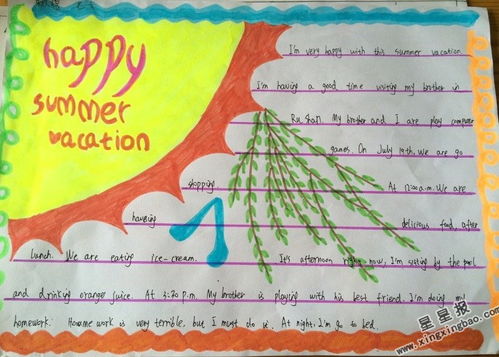 happy
summer
vacation
I'm very happy with this summer vacation.
I'm having a good time visiting my brother in
Ru Shan. My brother and I are play computer
games. On July 19th, we are go
shopping. At 12:00a.m. We are
having delicious food, after
lunch. We are eating ice-cream. It's afternoon right now, I'm sitting by the pool
and drinking orange juice. At 3:30 p.m. My brother is playing with his best friend. I'm doing my
homework. Home work is very terrible, but I must do it. At night, I'm go to bed.
星星报
www.xingxingbao.com